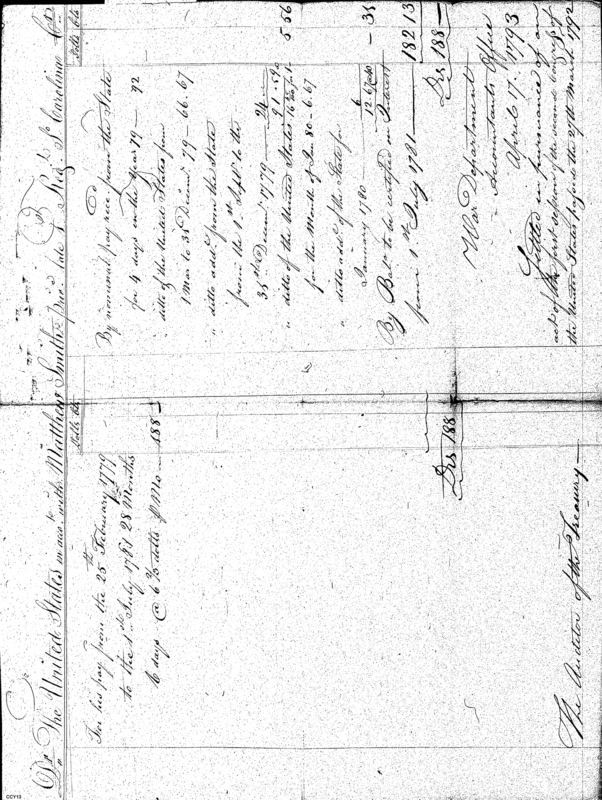 Dr. The United States in acct. with Matthew Smith, Pvt. late 1st Regt. So. Carolina Cr.
Dolls Cts
For his pay from the 25th February 1779
to the 1st July 1781 28 Months
6 days @ 6 2/3 dolls pr Mo — 188 —
Drs 188 —
The Auditor of the Treasury —
Dolls Cts
By nominal pay recd from the State
for 4 days in the Year 79 — 92
ditto of the United States from
1 Mar to 35 Decemr 79 — 66.67
" ditto addl. from the State
from the 1st Septr to the
35st Decemr 1779 — 24
91.59
" ditto of the United States
for the Month of Jan 80 — 6.67
" ditto addl. of the State for
January 1780 — 6
12.67
5 56
— 35
By Bale. to be certified on Interest
from 1st July 1781 — 182 13
Drs 188 —
War Department
Accountants Office
April 17. 1793
Settled in pursuance of an
act of the first session of the second Congress of
the United States passed the 27th March 1792
CCY13